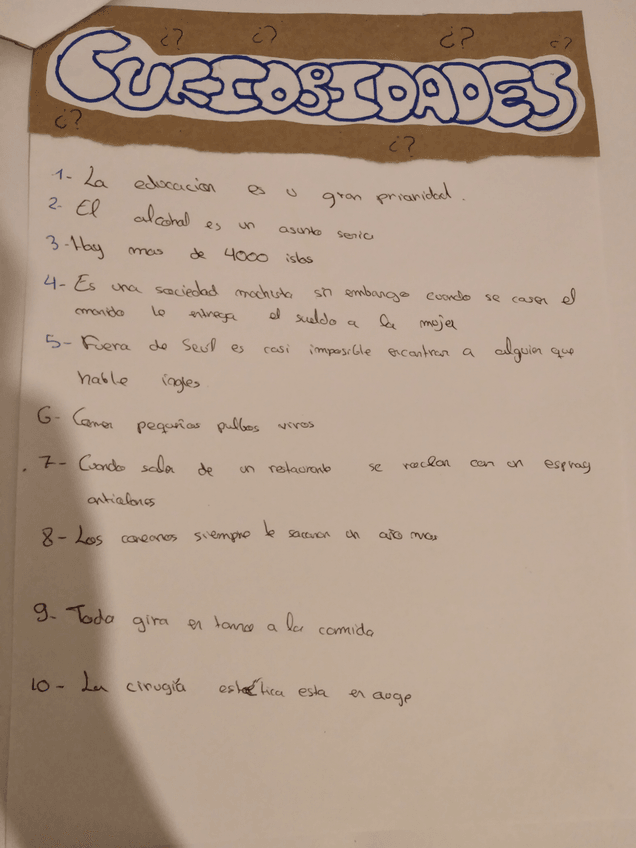 ¿? ¿? ¿? ¿?
CURIOSIDADES
¿? ¿?
1- La educacion es u gran prioridad.
2- El alcohol es un asunto serio
3- Hay mas de 4000 islas
4- Es una sociedad machista sin embargo cuando se casen el
marido le entrega el sueldo a la mujer
5- Fuera de Seul es casi imposible encontrar a alguien que
hable ingles
6- Comer pequeños pulpos vivos
7- Cuando salen de un restaurante se rocian con un espray
antiolores
8- Los coreanos siempre te sacaran un año mas
9- Todo gira en torno a la comida
10- La cirugía estética esta en auge